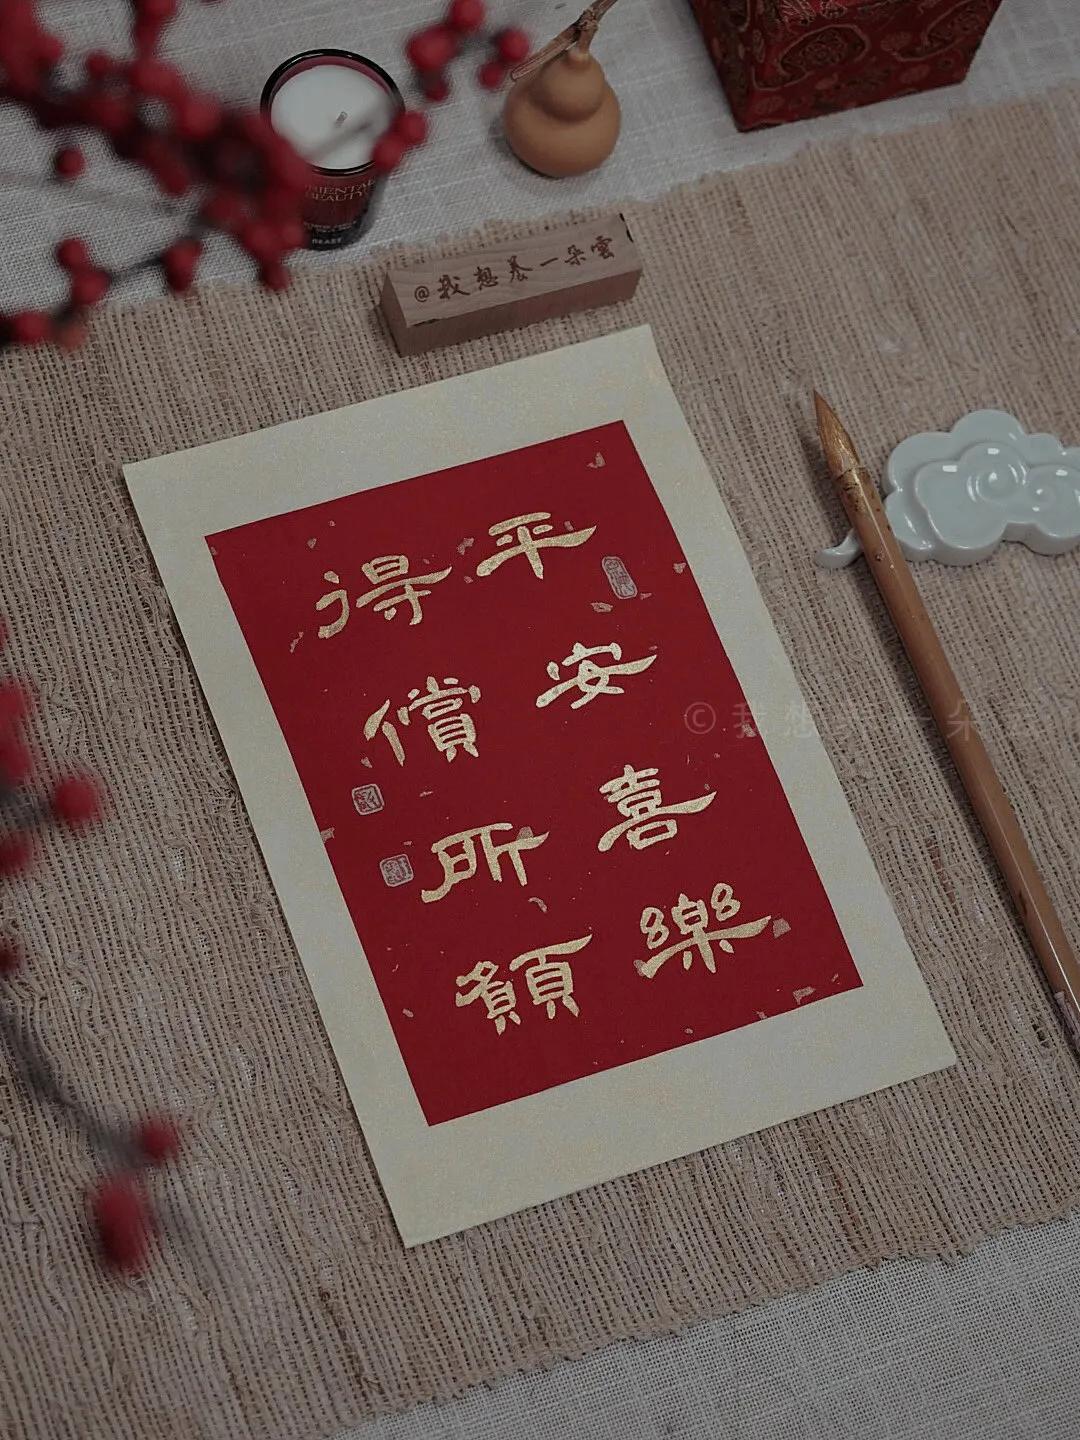 ORIENTAL
BEAUTY
BEAST
@我想养一朵雲
平安喜樂
得償所願
©我想养一朵雲